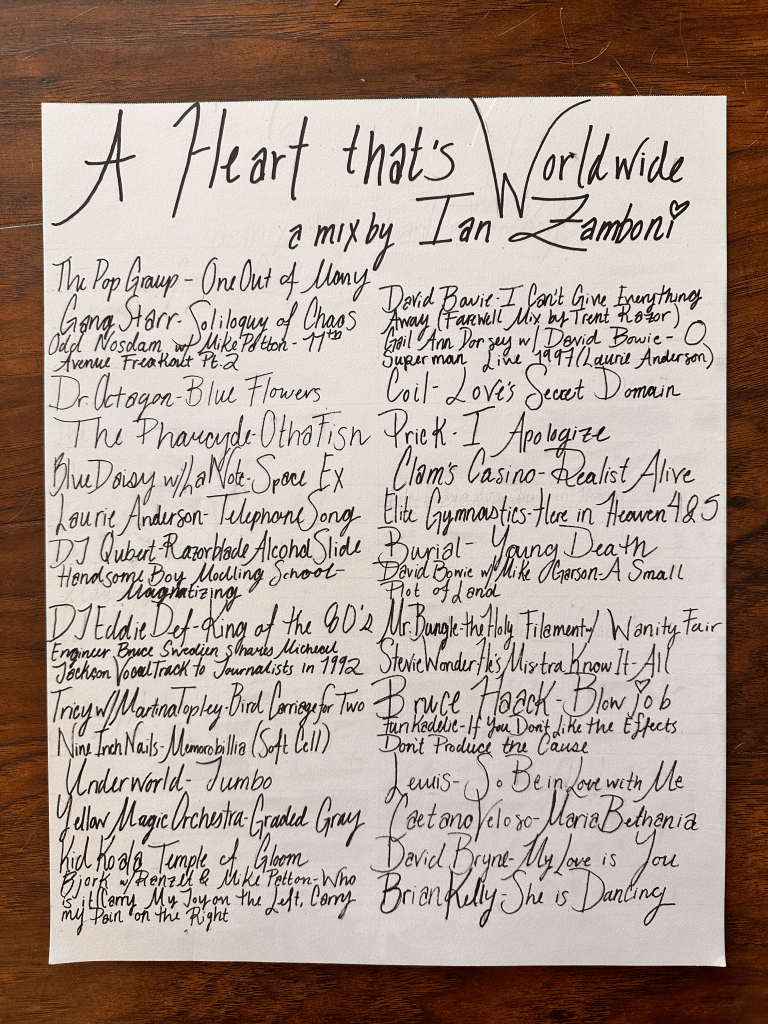 A Heart that's Worldwide
a mix by Ian Zamboni
The Pop Group - One Out of Many
Gang Starr - Soliloquy of Chaos
Odd Nosdam w/ Mike Patton - 11th
Avenue Freakout Pt.2
Dr. Octagon - Blue Flowers
The Pharcyde - Otha Fish
Blue Daisy w/ LaNote - Space Ex
Laurie Anderson - Telephone Song
DJ Qubert - Razorblade Alcohol Slide
Handsome Boy Modling School -
Magnatizing
DJ Eddie Def - King of the 80's
Engineer Bruce Swedien shares Micheal
Jackson Vocal Track to Journalists in 1992
Tricy w/ Martina Topley - Bird Carriage for Two
Nine Inch Nails - Memorobillia (Soft Cell)
Underworld - Jumbo
Yellow Magic Orchestra - Graded Gray
Kid Koala Temple of Gloom
Bjork w/ Rahzel & Mike Patton - Who
is it Carry My Joy on the Left, Carry
my Pain on the Right
David Bowie - I Can't Give Everything
Away (Farewell Mix by Trent Razor)
Gail Ann Dorsey w/ David Bowie - O
Superman Live 1997 (Laurie Anderson)
Coil - Love's Secret Domain
Prick - I Apologize
Clam's Casino - Realist Alive
Elite Gymnastics - Here in Heaven 4 & 5
Burial - Young Death
David Bowie w/ Mike Garson - A Small
Plot of Land
Mr. Bungle - the Holy Filament / Wanity Fair
Stevie Wonder - He's Mistra Know It - All
Bruce Haack - Blow job
Funkadelic - If You Don't Like the Effects
Don't Produce the Cause
Lewis - So Be in Love with Me
Caetano Veloso - Maria Bethania
David Bryne - My Love is You
Brian Kelly - She is Dancing